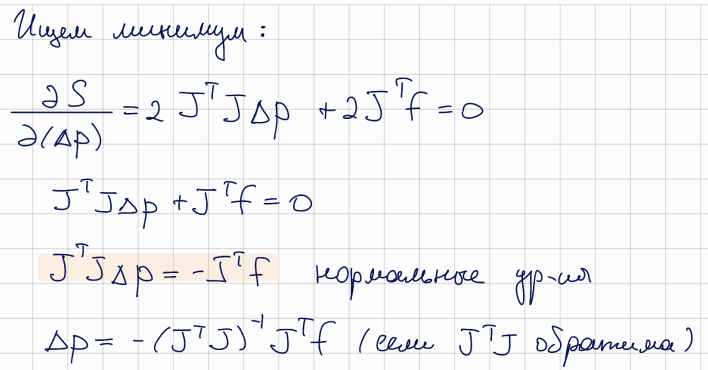 Ищем минимум:
∂S/∂(Δp) = 2 JᵀJΔp + 2Jᵀf = 0
JᵀJΔp + Jᵀf = 0
JᵀJΔp = -Jᵀf нормальные ур-ия
Δp = -(JᵀJ)⁻¹Jᵀf (если JᵀJ обратима)